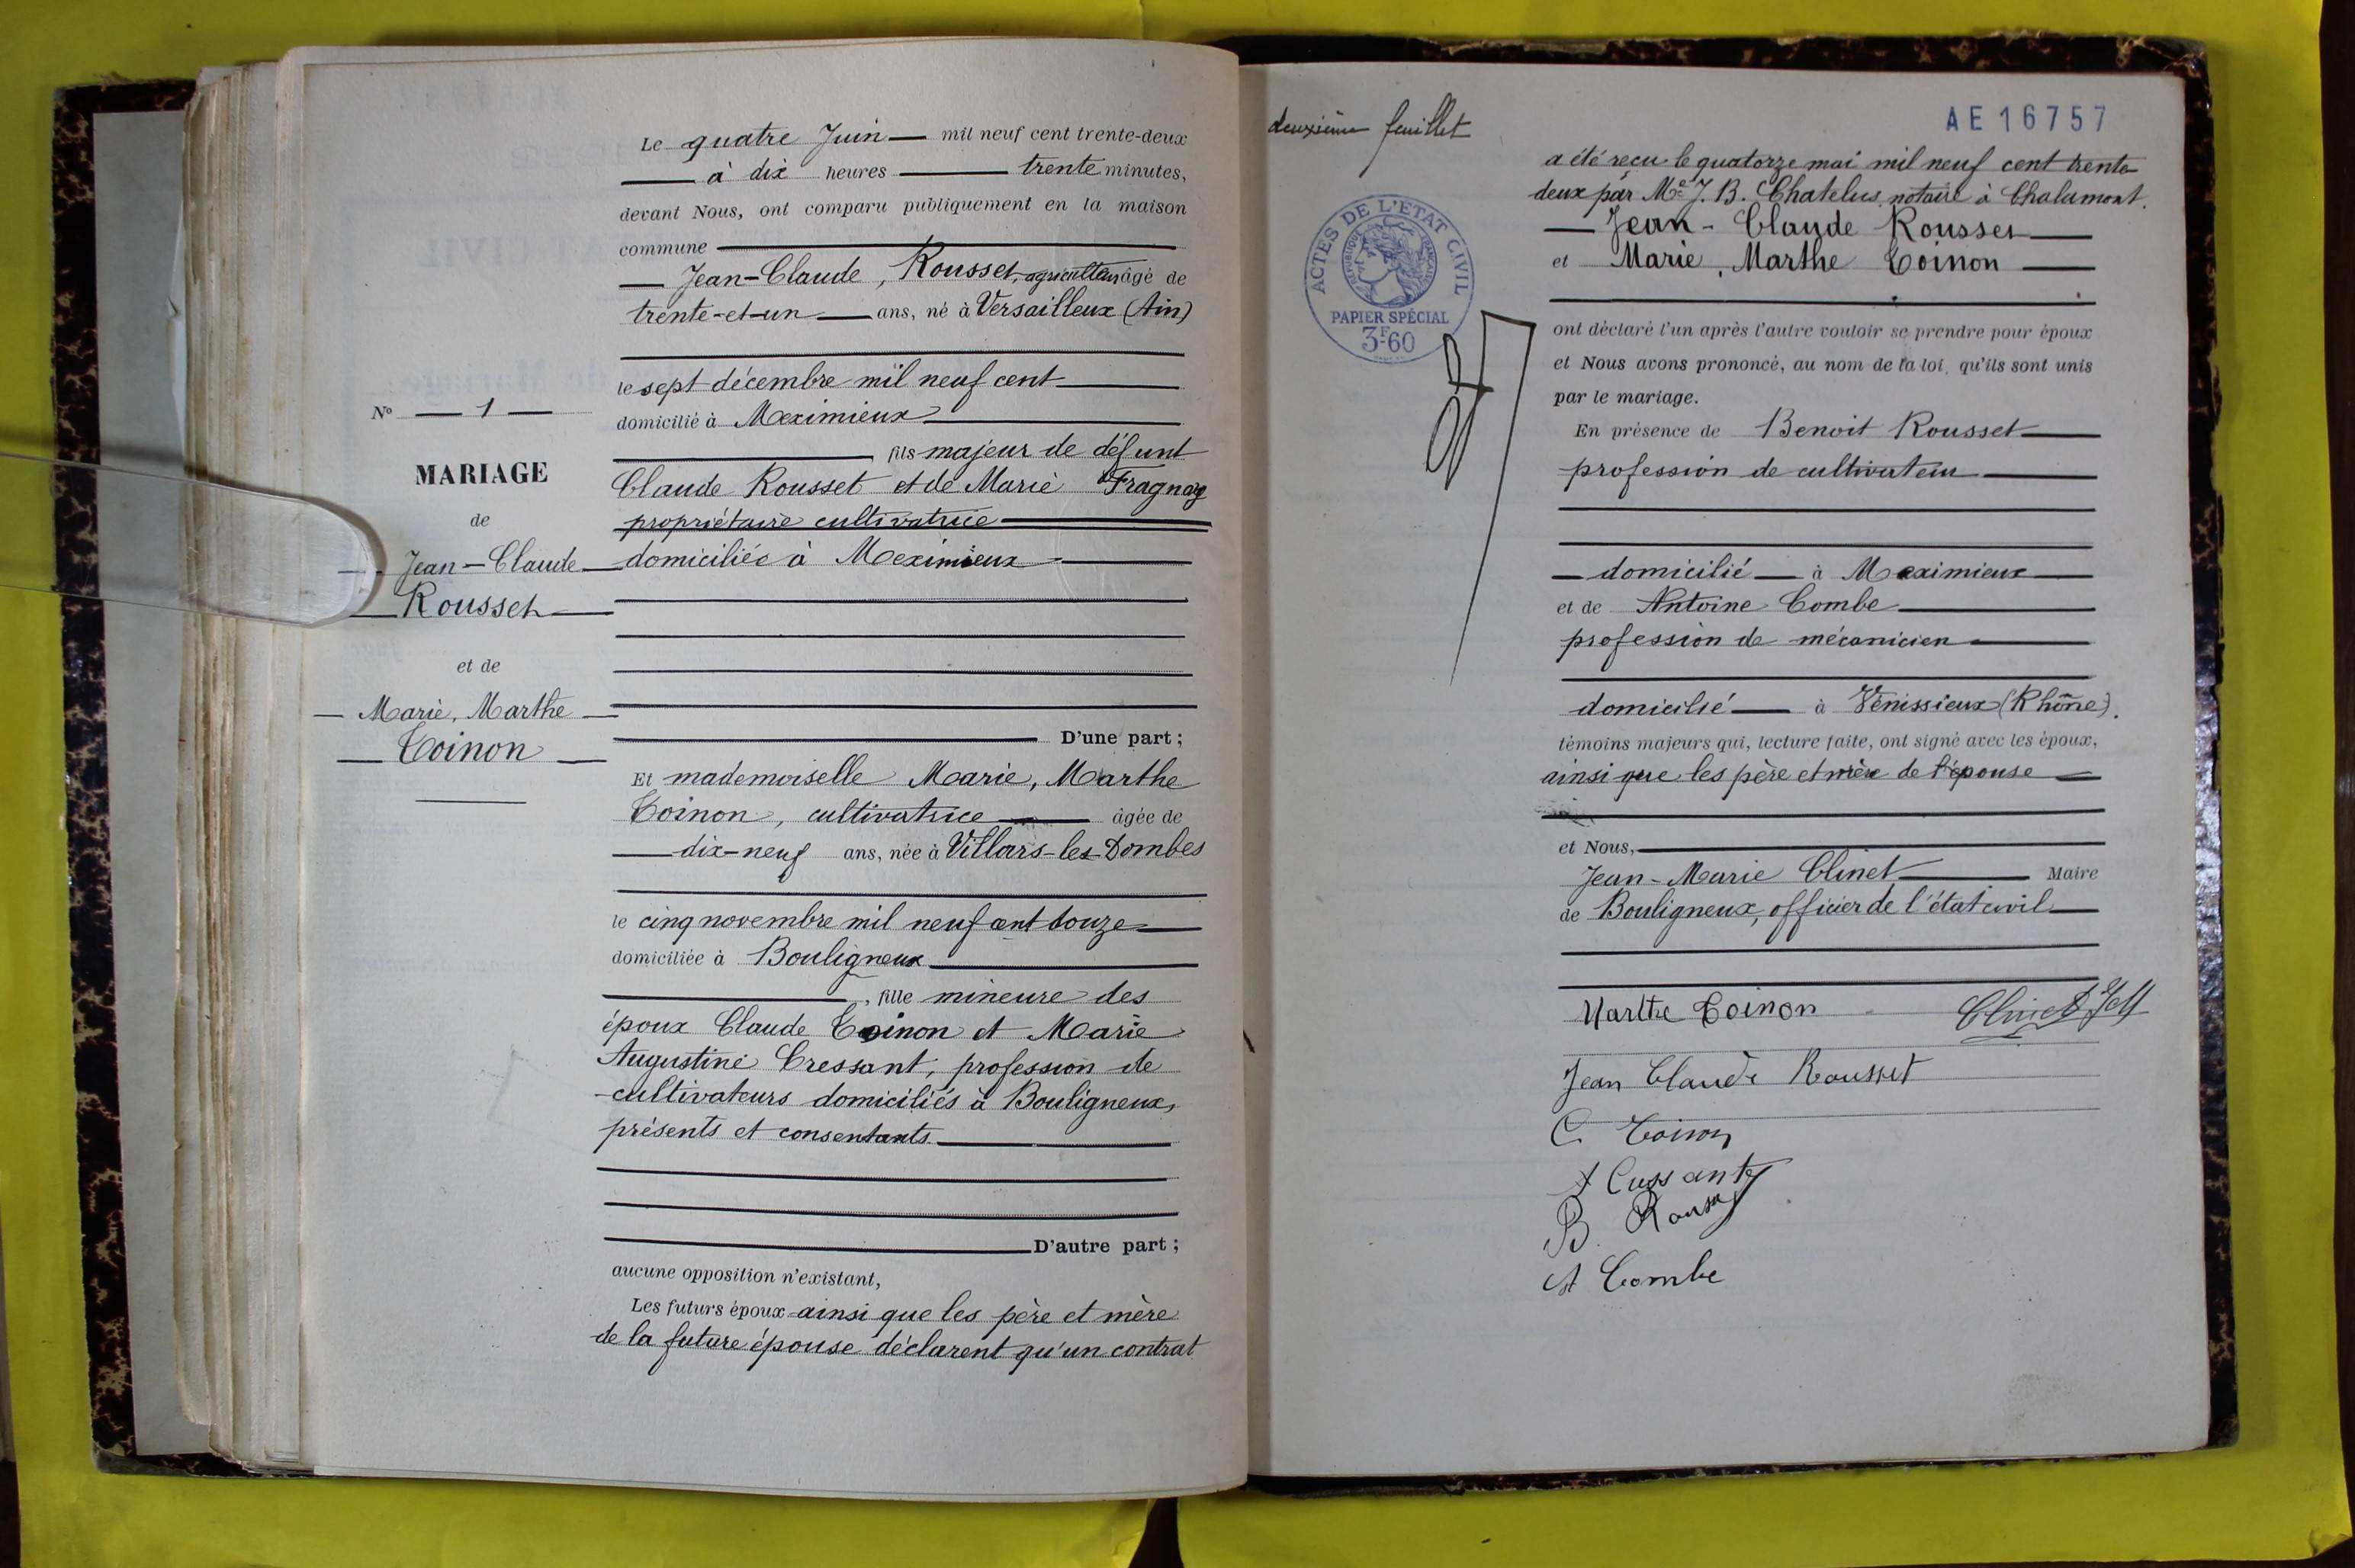 Le quatre Juin mil neuf cent trente-deux
à dix heures trente minutes,
devant Nous, ont comparu publiquement en la maison
commune
Jean-Claude, Rousset, agriculteur âgé de
trente-et-un ans, né à Versailleux (Ain)
le sept décembre mil neuf cent
domicilié à Meximieux
fils majeur de défunt
Claude Rousset et de Marie Fragnay
propriétaire cultivatrice
domiciliée à Meximieux
D'une part ;
Et mademoiselle Marie, Marthe
Toinon, cultivatrice âgée de
dix-neuf ans, née à Villars-les-Dombes
le cinq novembre mil neuf cent douze
domiciliée à Bouligneux
, fille mineure des
époux Claude Toinon et Marie
Augustine Cressant, profession de
cultivateurs domiciliés à Bouligneux,
présents et consentants.
D'autre part ;
aucune opposition n'existant,
Les futurs époux ainsi que les père et mère
de la future épouse déclarent qu'un contrat
No 1
MARIAGE
de
Jean-Claude
Rousset
et de
Marie, Marthe
Toinon
deuxième feuillet
AE 16757
ACTES DE L'ETAT CIVIL
REPUBLIQUE FRANÇAISE
PAPIER SPÉCIAL
3F60
a été reçu le quatorze mai mil neuf cent trente-
deux par Me J. B. Chatelus notaire à Chalamont.
Jean-Claude Rousset
et Marie, Marthe Toinon
ont déclaré l'un après l'autre vouloir se prendre pour époux
et Nous avons prononcé, au nom de la loi, qu'ils sont unis
par le mariage.
En présence de Benoit Rousset
profession de cultivateur
domicilié à Meximieux
et de Antoine Combe
profession de mécanicien
domicilié à Vénissieux (Rhône).
témoins majeurs qui, lecture faite, ont signé avec les époux,
ainsi que les père et mère de l'épouse
et Nous,
Jean-Marie Clinet Maire
de Bouligneux, officier de l'état civil
Marthe Toinon Clinet
Jean Claude Rousset
C. Toinon
A Cressant
B. Rousset
A Combe